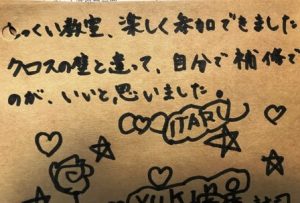 しっくい教室、楽しく参加できました
クロスの壁と違って、自分で補修で
のが、いいと思いました。
ITARU
YUKI